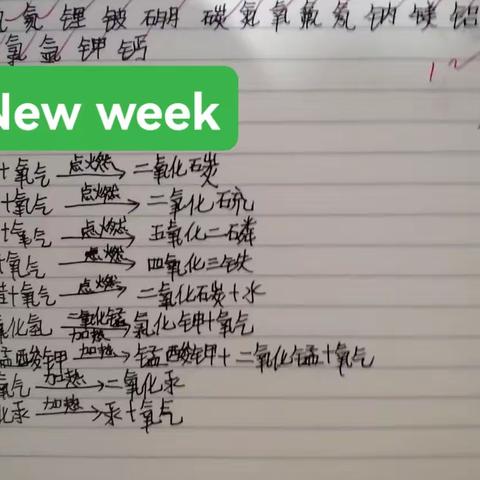 氦 锂 铍 硼 碳 氮 氧 氟 氖 钠 镁 铝
氯 氩 钾 钙
New week
+氧气 点燃→ 二氧化碳
+氧气 点燃→ 二氧化硫
+氧气 点燃→ 五氧化二磷
+氧气 点燃→ 四氧化三铁
+氧气 点燃→ 二氧化碳+水
氧化氢 二氧化锰 加热→ 氯化钾+氧气
锰酸钾 加热→ 锰酸钾+二氧化锰+氧气
氧气 加热→ 二氧化汞
化汞 加热→ 汞+氧气